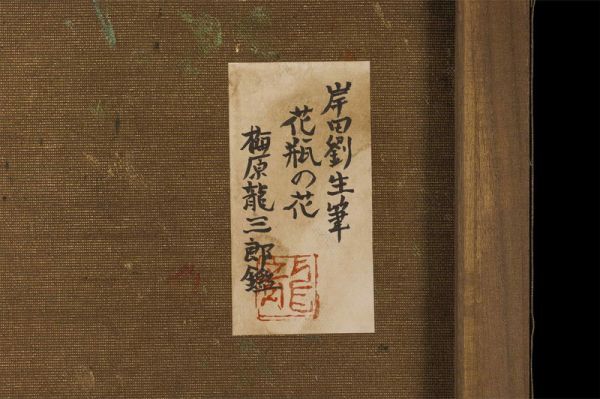 岸田劉生筆
花瓶の花
梅原龍三郎鑑